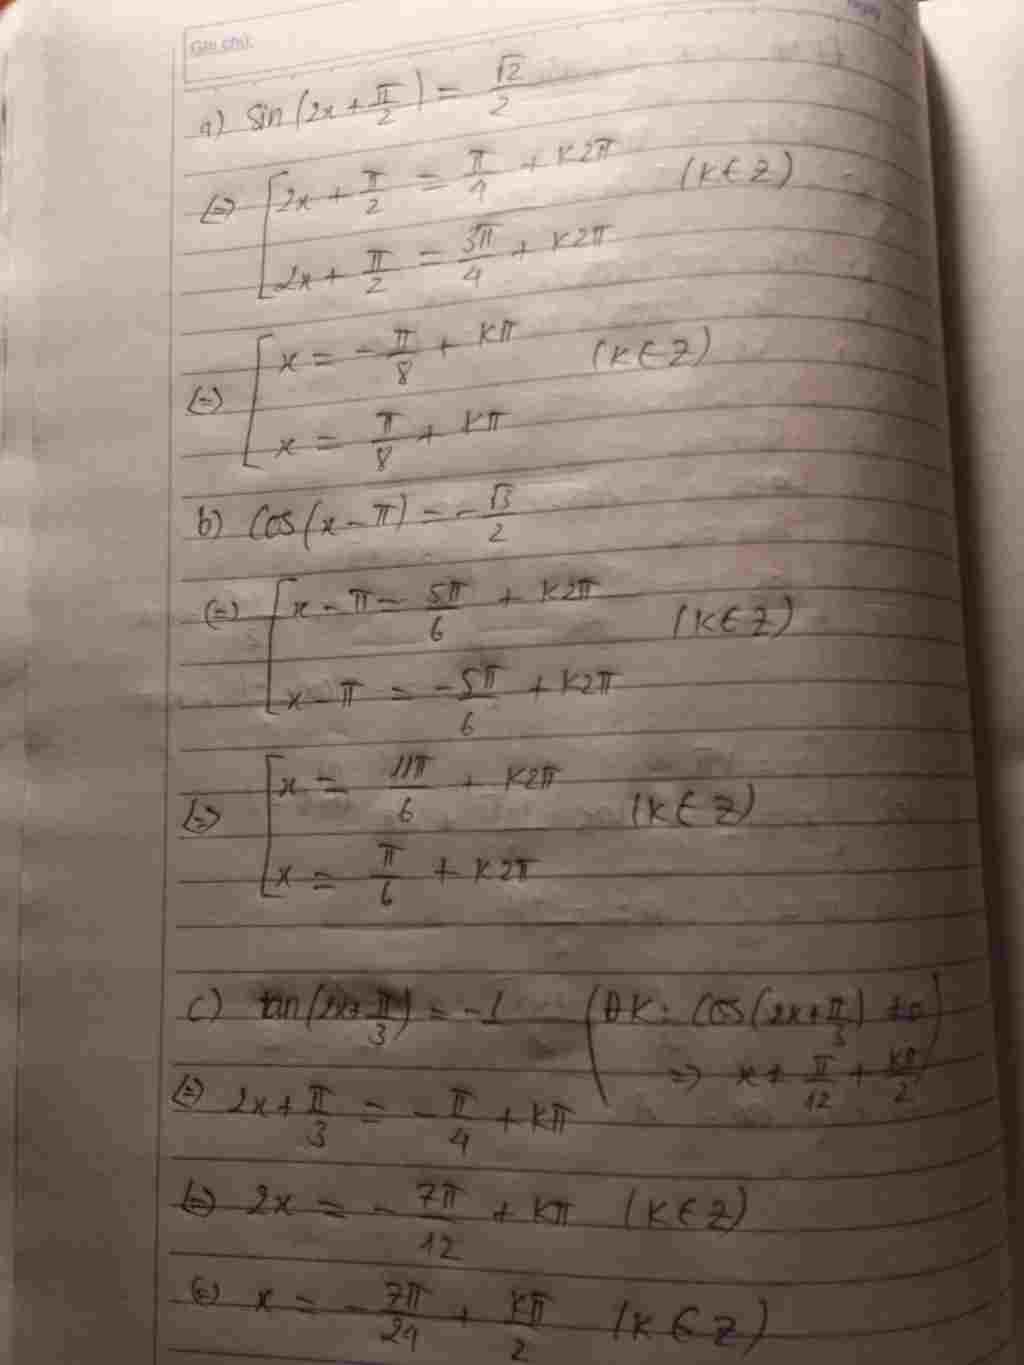 Ghi chú:
Ngày
a) sin(2x + π/2) = √2/2
(=) [2x + π/2 = π/4 + k2π (k∈Z)
2x + π/2 = 3π/4 + k2π
(=) [x = -π/8 + kπ (k∈Z)
x = π/8 + kπ
b) cos(x - π) = -√3/2
(=) [x - π = 5π/6 + k2π (k∈Z)
x - π = -5π/6 + k2π
(=) [x = 11π/6 + k2π (k∈Z)
x = π/6 + k2π
c) tan(2x + π/3) = -1 (ĐK: cos(2x + π/3) ≠ 0
=> x ≠ π/12 + kπ/2)
(=) 2x + π/3 = -π/4 + kπ
(=) 2x = -7π/12 + kπ (k∈Z)
(=) x = -7π/24 + kπ/2 (k∈Z)